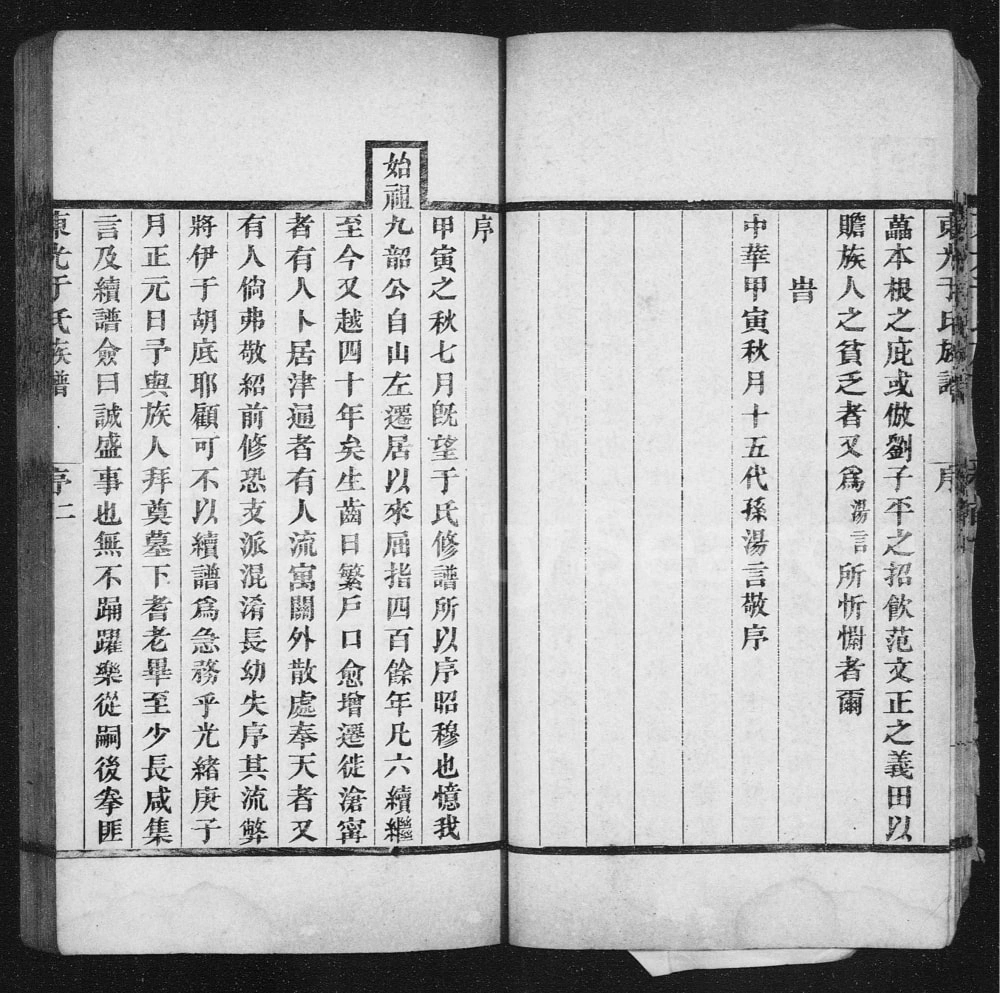 東光于氏族譜 序
藟本根之庇或倣劉子平之招飲范文正之義田以
贍族人之貧乏者又爲湯言所忻慵者爾
旹
中華甲寅秋月十五代孫湯言敬序
序
甲寅之秋七月旣望于氏修譜所以序昭穆也憶我
始祖九韶公自山左遷居以來屈指四百餘年凡六續繼
至今又越四十年矣生齒日繁戶口愈增遷徙滄甯
者有人卜居津通者有人流寓關外散處奉天者又
有人倘弗敬紹前修恐支派混淆長幼失序其流弊
將伊于胡底耶顧可不以續譜爲急務乎光緒庚子
月正元日予與族人拜奠墓下耆老畢至少長咸集
言及續譜僉曰誠盛事也無不踊躍樂從嗣後拳匪
東光于氏族譜 序二